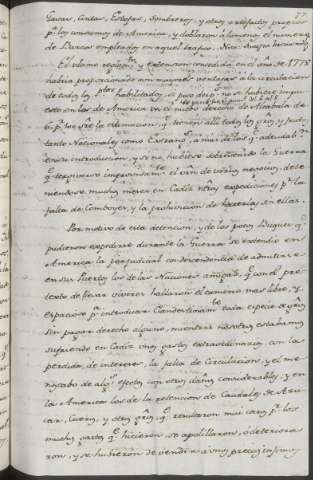 Gasas, Cintas, Estofas, Sombreros, y otros artefactos propios
pª los consumos de America, y doblaron à lo menos el numero
de Barcos empleados en aquel trafico
El ultimo reglamto y extension concedida en el año de 1778
havia proporcionado con mayores ventajas à la circulacion
de todos los Ptos habilitados, si poco despues no se hubiere impu-
esto en los de America un nuevo derecho de Alcabala de
tanto Nacionales como Estrang.s
en su introduccion, y si no hubiese sobrevenido la Guerra
que interrumpio el orn de varios negocios, dete-
niendose muchos meses en Cadiz otras expediciones pr la
falta de Comboyes, y la prohivicion de hacerlas sin ellos.
Por motivo de esta detencion, y de los pocos Buques q.e
pudieron expedirse durante la Guerra se extendio en
America la perjudicial condescendencia de admitirse
en sus Puertos los de las Naciones amigas, q.e con el pre-
texto de llevar viveres hallaron el camino mas libre, y
espacioso pª introducir Clandestinamte toda especie de gros
sin pagar derecho alguno, mientras nosotros estabamos
sufriendo en Cadiz unos gastos extraordinarios, con la
perdida de intereses, la falta de Circulacion, y el me-
noscabo de algs efectos, con otros daños considerables, y en
la America los de la retencion de Caudales de Azu-
car, Cueros, y otros gros, q.e resultaron mui caros pr los
muchos gastos q.e hicieron, se apolillaron, ò deteriora-
ron, y se hubieron de vender à unos precios infimos